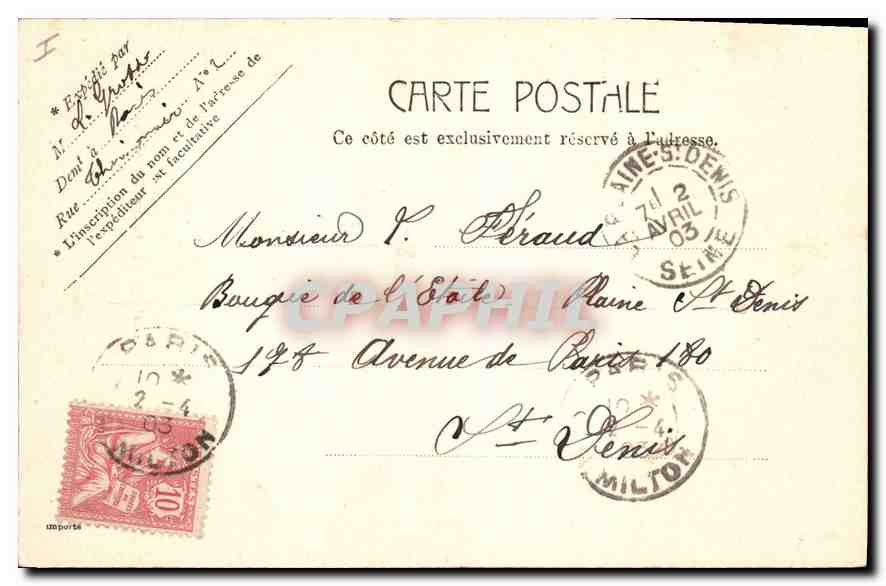 I
* Expédié par
M
Demt à Paris
Rue N° 2
* L'inscription du nom et de l'adresse de
l'expéditeur est facultative
CARTE POSTALE
Ce côté est exclusivement réservé à l'adresse.
LA PLAINE-ST DENIS
7H 2
AVRIL
03
SEINE
Monsieur V. Féraud
Bougie de l'Etoile Plaine St Denis
178 Avenue de Paris 180
St Denis
CPAPHIL
PARIS
10 *
2 - 4
03
MILTON
10
PARIS
10 *
2 - 4
MILTON
importé